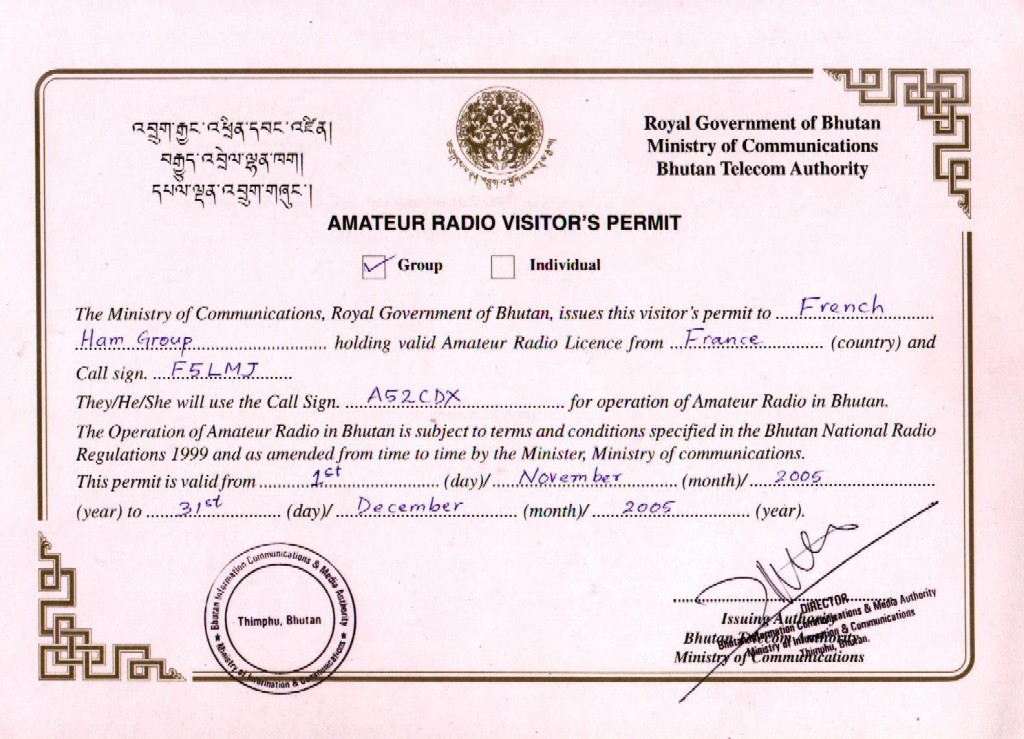 འབྲུག་རྒྱང་འཕྲིན་དབང་འཛིན།
བརྒྱུད་འབྲེལ་ལྷན་ཁག།
དཔལ་ལྡན་འབྲུག་གཞུང་།
Royal Government of Bhutan
Ministry of Communications
Bhutan Telecom Authority
AMATEUR RADIO VISITOR'S PERMIT
Group Individual
The Ministry of Communications, Royal Government of Bhutan, issues this visitor's permit to French
Ham Group holding valid Amateur Radio Licence from France (country) and
Call sign. F5LMJ
They/He/She will use the Call Sign. A52CDX for operation of Amateur Radio in Bhutan.
The Operation of Amateur Radio in Bhutan is subject to terms and conditions specified in the Bhutan National Radio
Regulations 1999 and as amended from time to time by the Minister, Ministry of communications.
This permit is valid from 1st (day)/ November (month)/ 2005
(year) to 31st (day)/ December (month)/ 2005 (year).
Bhutan Information Communications & Media Authority
Thimphu, Bhutan
Ministry of Information & Communications
Issuing Authority
Bhutan Telecom Authority
Ministry of Communications
DIRECTOR
Bhutan Information Communications & Media Authority
Ministry of Information & Communications
Thimphu, Bhutan.